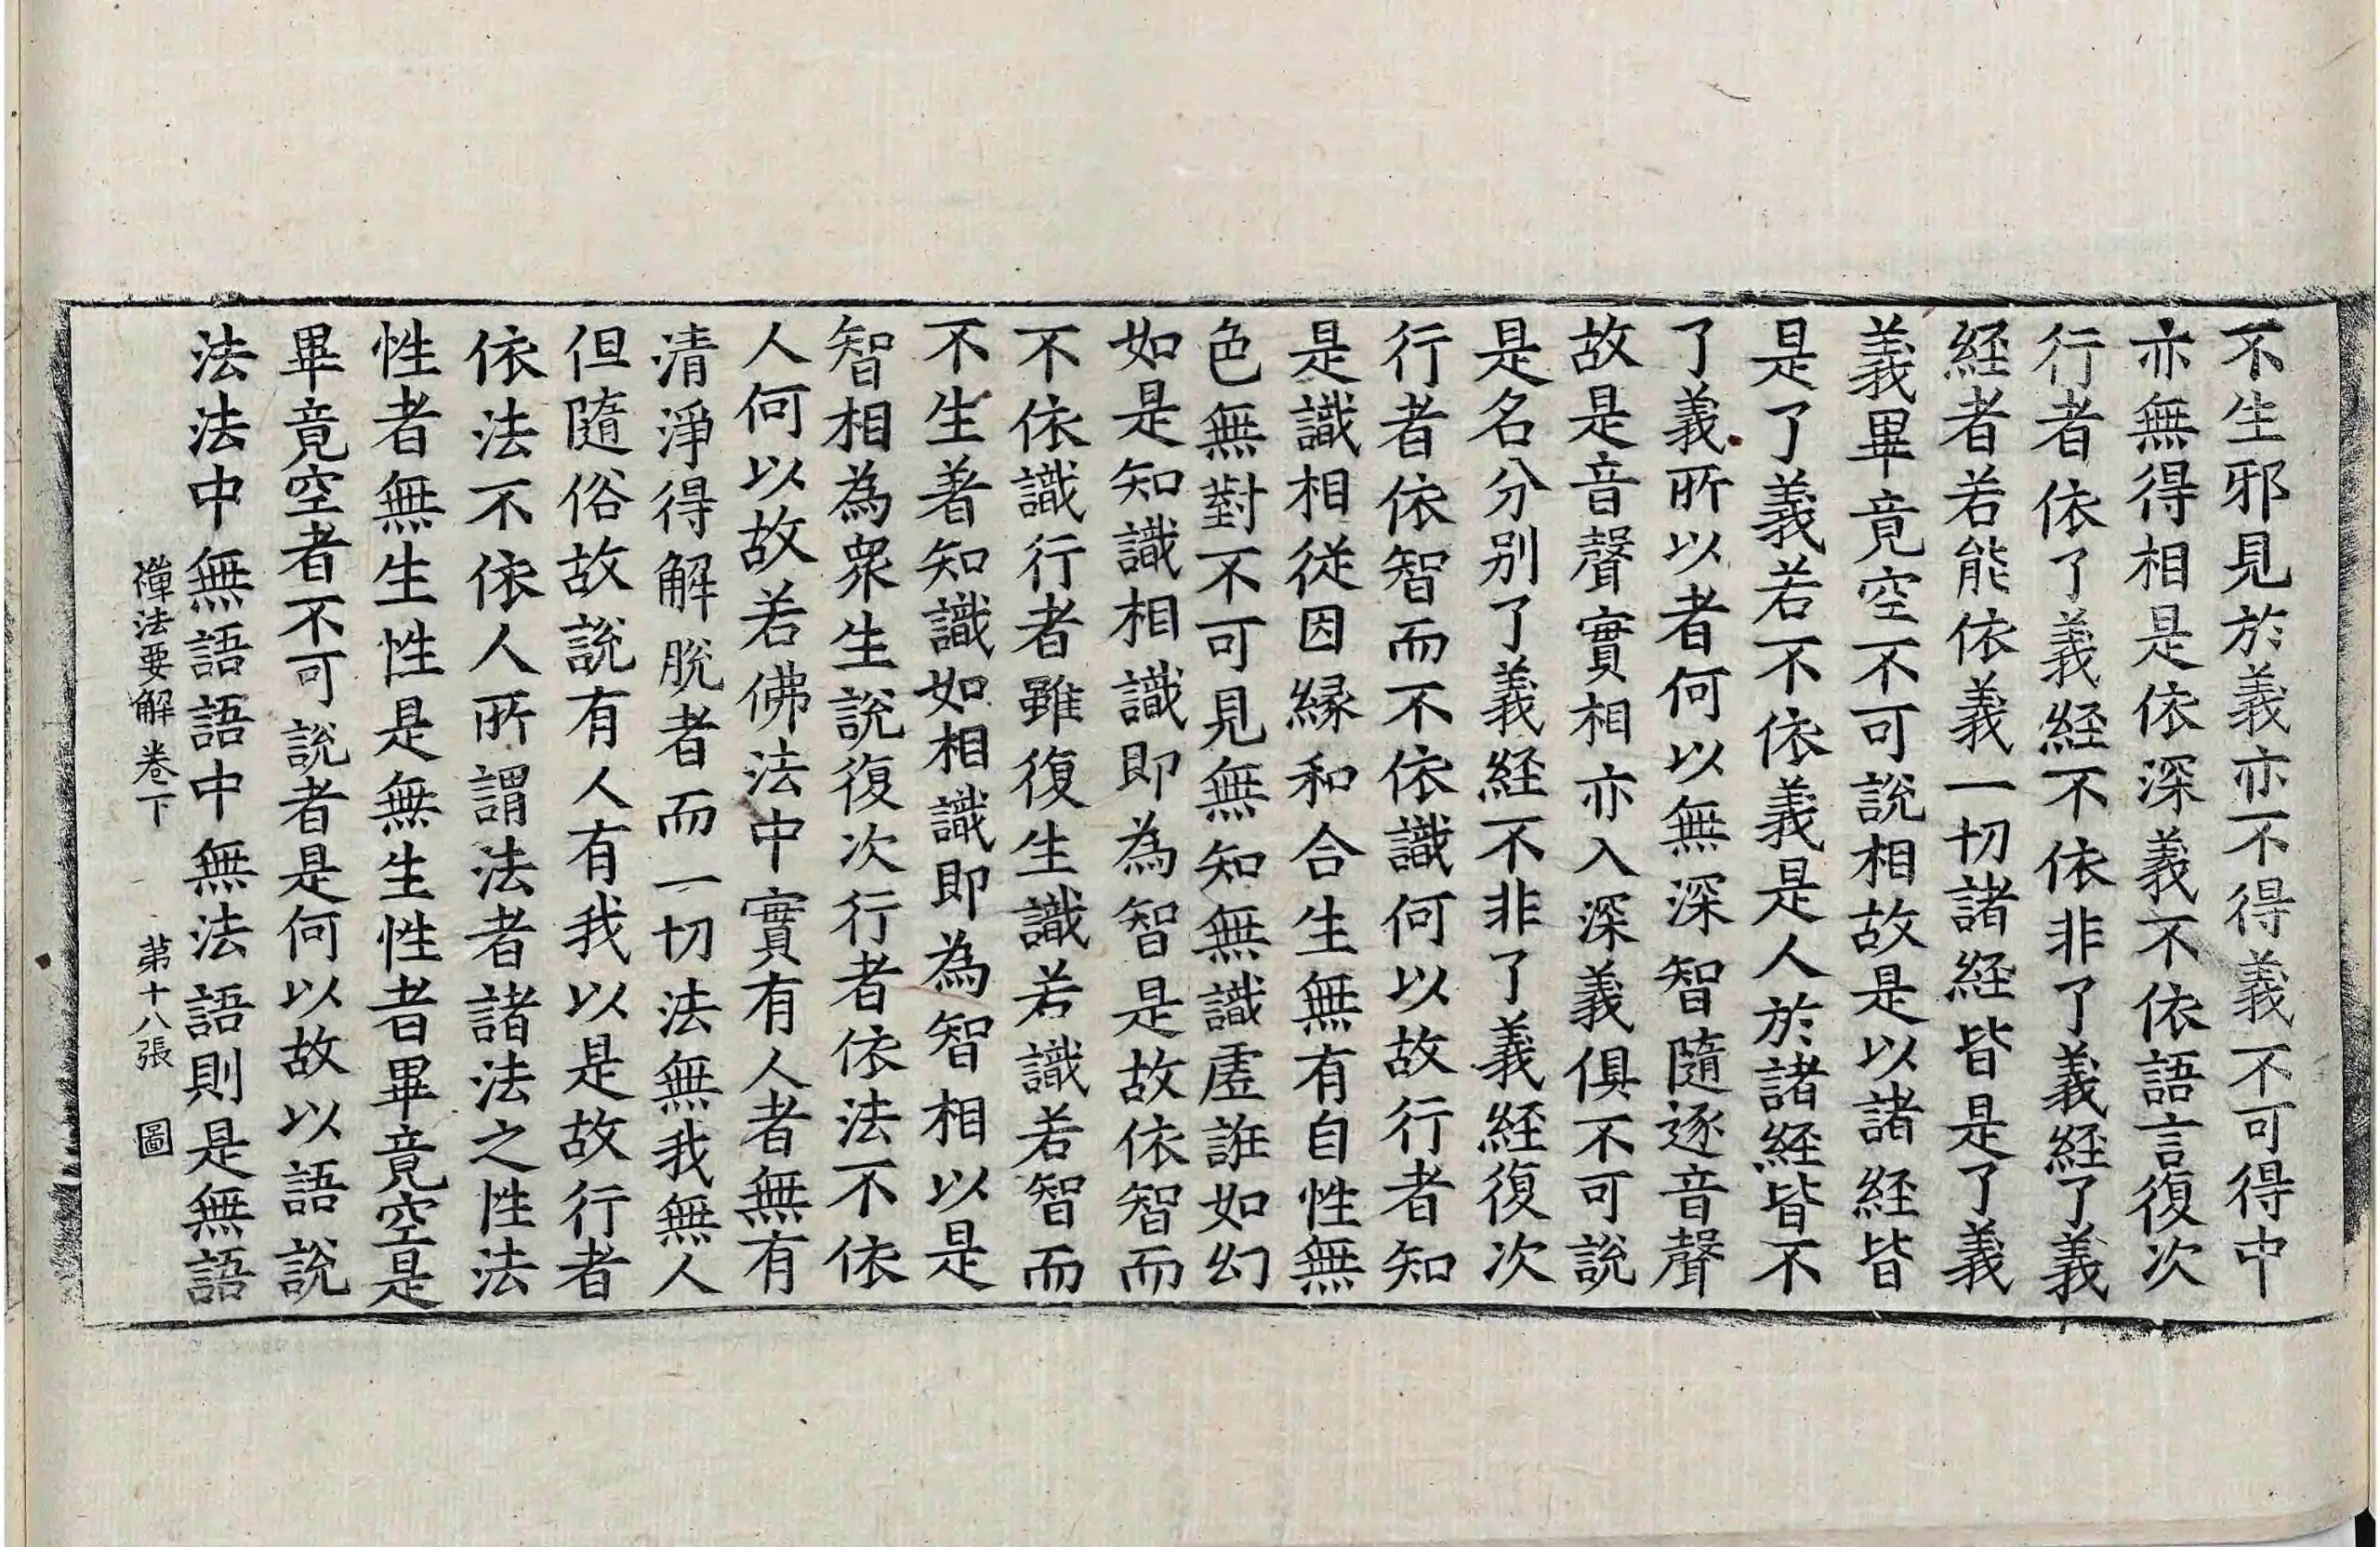 不生邪見於義亦不得義不可得中
亦無得相是依深義不依語言復次
行者依了義経不依非了義経了義
経者若能依義一切諸経皆是了義
義畢竟空不可説相故是以諸経皆
是了義若不依義是人於諸経皆不
了義所以者何以無深智隨逐音聲
故是音聲實相亦入深義俱不可説
是名分别了義経不非了義経復次
行者依智而不依識何以故行者知
是識相從因縁和合生無有自性無
色無對不可見無知無識虗誑如幻
如是知識相識即為智是故依智而
不依識行者雖復生識若識若智而
不生著知識如相識即為智相以是
智相為衆生説復次行者依法不依
人何以故若佛法中實有人者無有
清淨得解脱者而一切法無我無人
但隨俗故説有人有我以是故行者
依法不依人所謂法者諸法之性法
性者無生性是無生性者畢竟空是
畢竟空者不可説者是何以故以語説
法法中無語語中無法語則是無語
禪法要解卷下 第十八張 圖